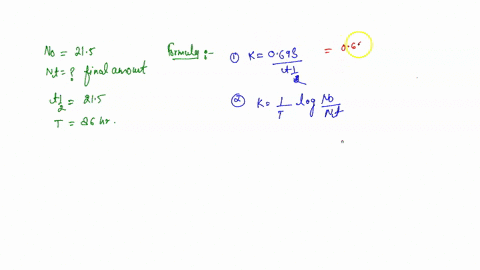 No = 21.5
Nt = ? final amount
t1/2 = 21.5
T = 86 hr.
Formula :-
① K = 0.693 / t1/2 = 0.6
② K = 1/T log No/Nt